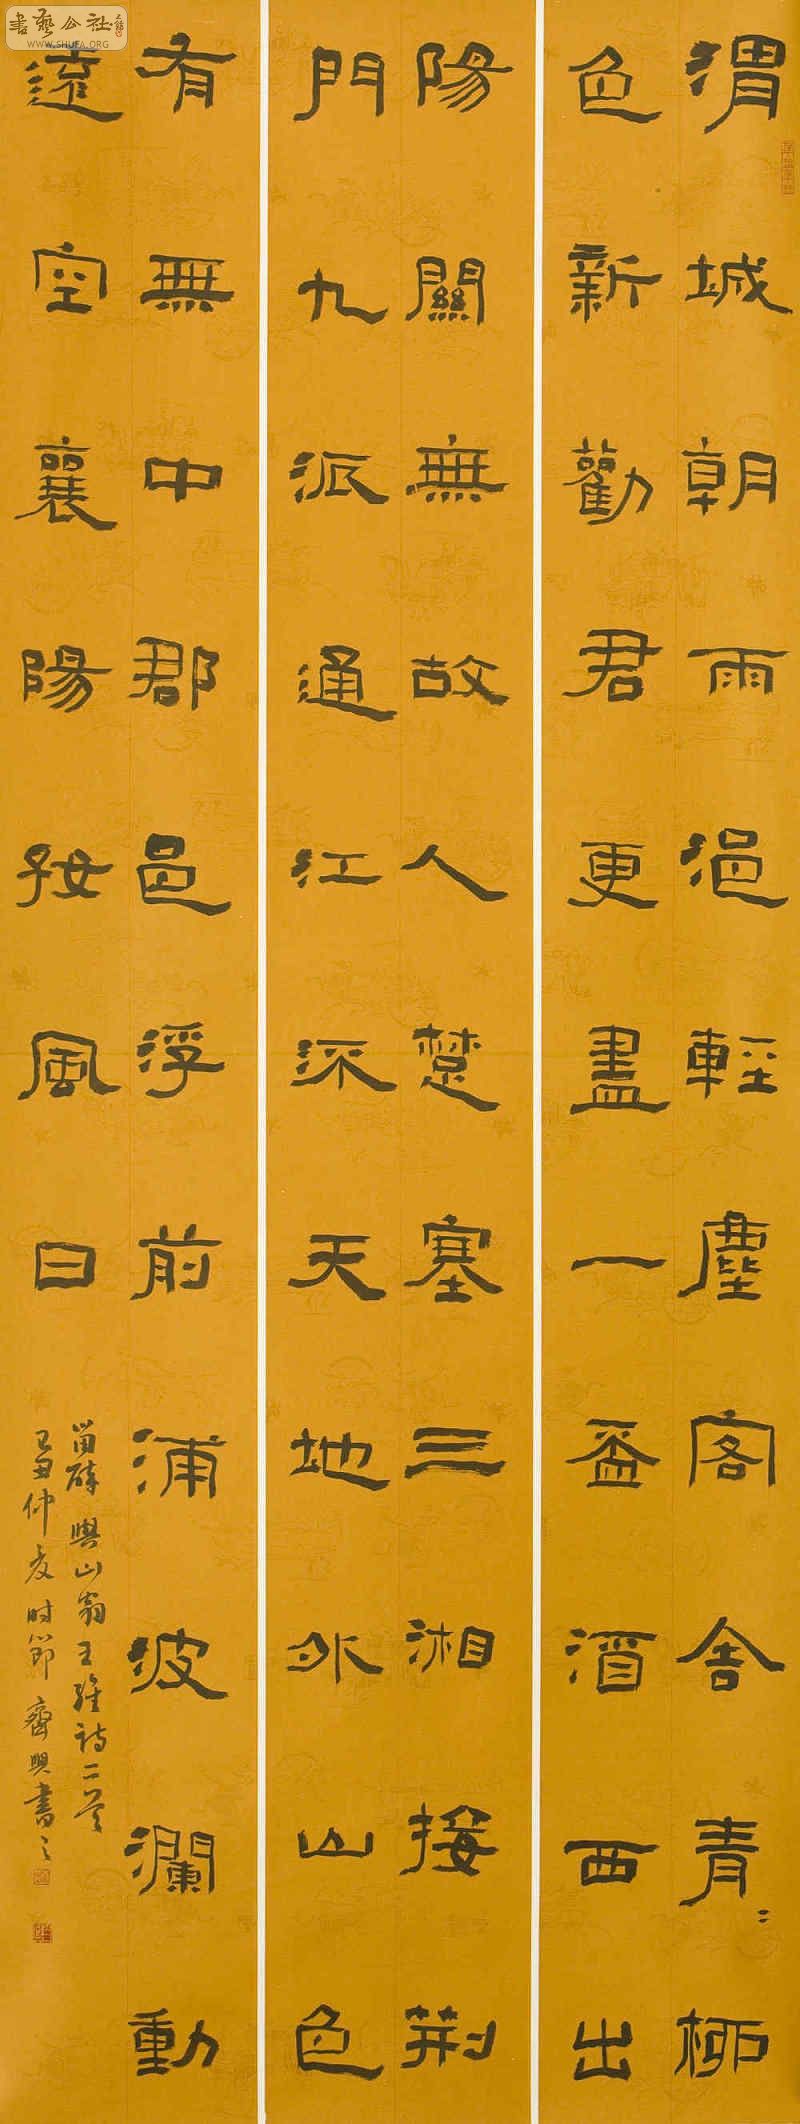 渭城朝雨浥輕塵客舍青〻柳
色新勸君更盡一盃酒西出
陽關無故人楚塞三湘接荆
門九派通江流天地外山色
有無中郡邑浮前浦波瀾動
遠空襄陽好風日
留醉與山翁王維詩二首
己丑仲夏時節齊興書之
書藝公社
WWW.SHUFA.ORG